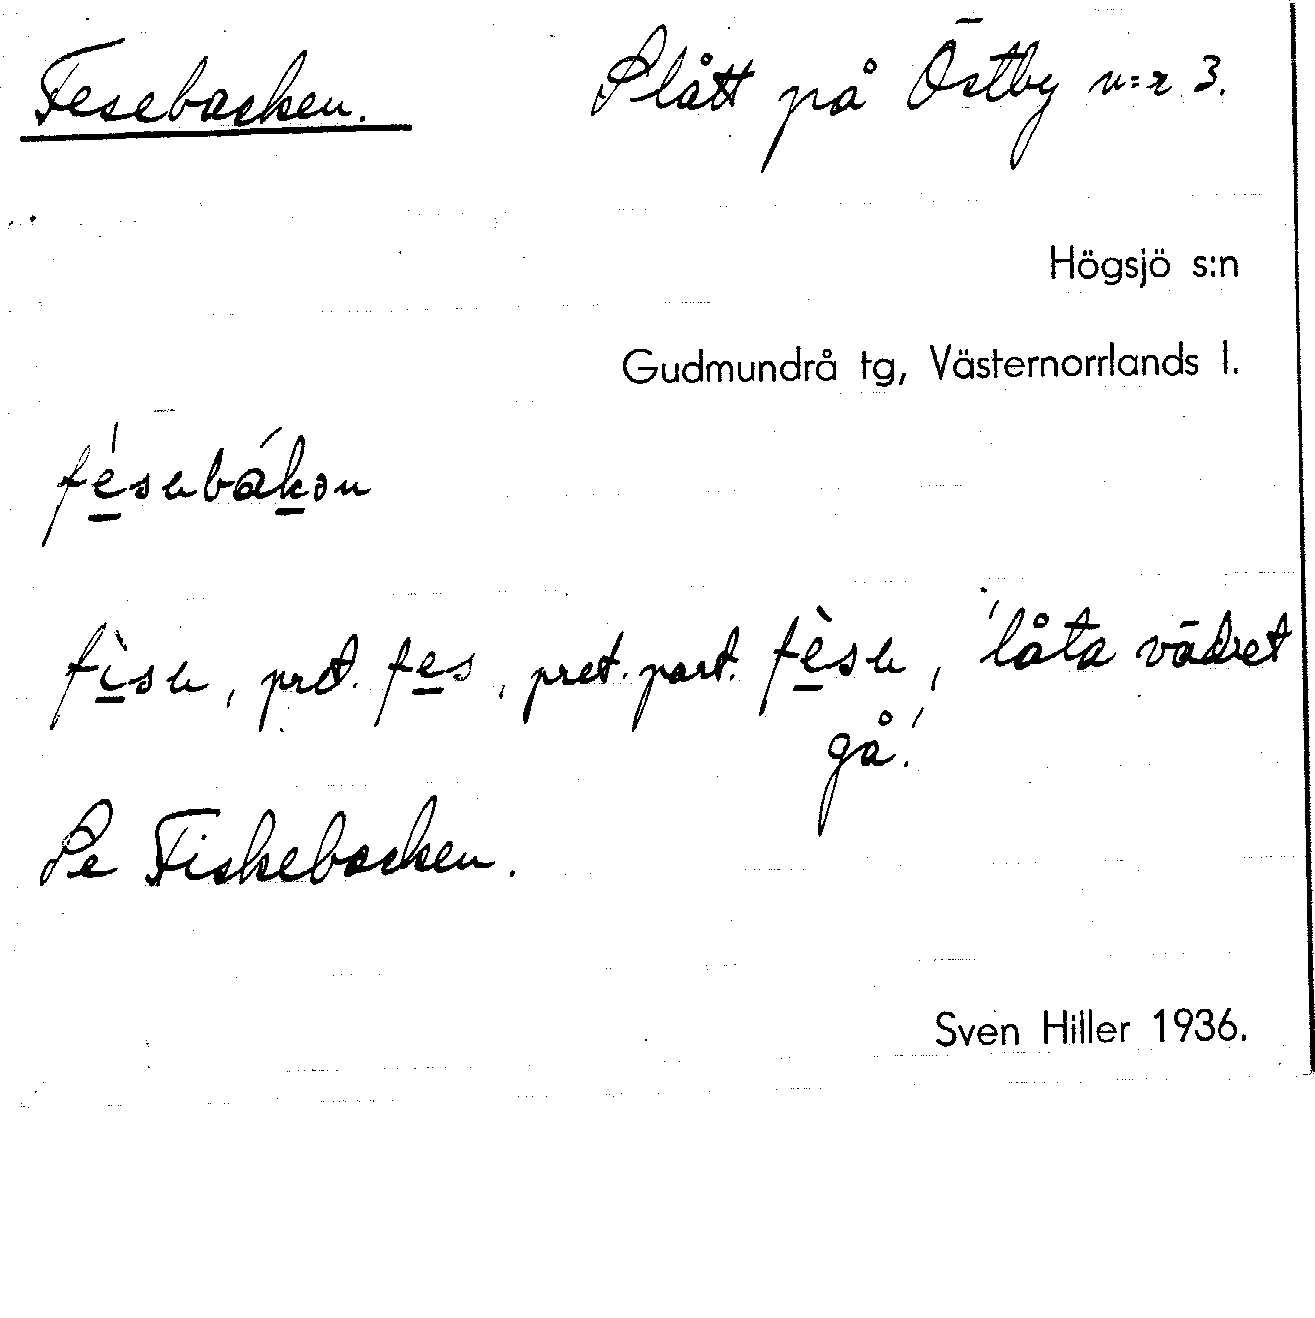 Fesebacken. Slått på Östby n:r 3.
Högsjö s:n
Gudmundrå tg, Västernorrlands l.
fésebákən
fìse, pret. fes, pret. part. fèse, 'låta vädret
gå.'
Se Fiskebacken.
Sven Hiller 1936.